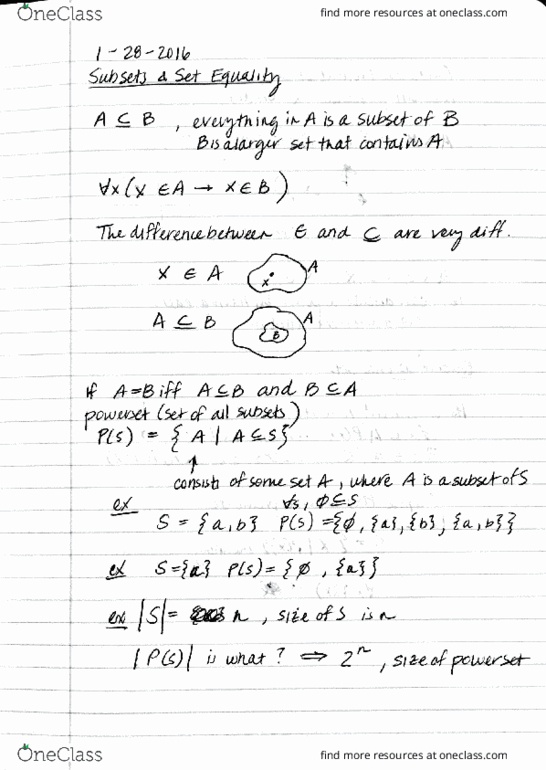 OneClass
find more resources at oneclass.com
1-28-2016
Subsets & Set Equality
A ⊆ B , everything in A is a subset of B
B is a larger set that contains A
∀x(x ∈ A → x ∈ B)
The difference between ∈ and ⊂ are very diff.
x ∈ A
x
A
A ⊆ B
A
B
If A=B iff A ⊆ B and B ⊆ A
powerset (set of all subsets)
P(s) = { A | A ⊆ S }
↑
consists of some set A, where A is a subset of S
ex ∀s, ∅ ⊆ S
S = {a, b} P(s) = {∅, {a}, {b}, {a, b}}
ex S = {a} P(s) = {∅, {a}}
ex |S| = n , size of S is n
|P(s)| is what? ⇒ 2ⁿ , size of powerset
OneClass
find more resources at oneclass.com